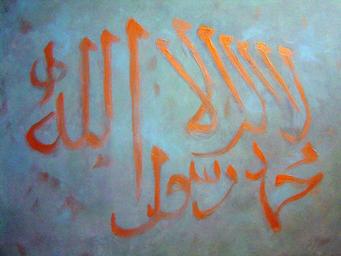 لا اله الا الله
محمد رسول